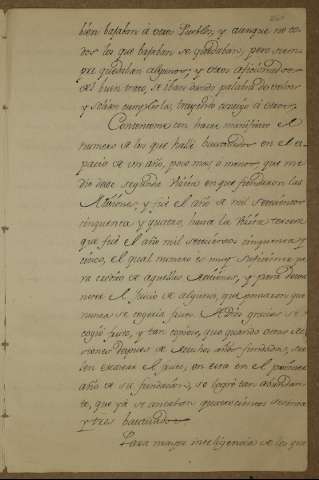 bien bajaban à otros Pueblos, y aunque no to-
dos los que bajaban se quedaban, pero siem-
pre quedaban algunos; y otros aficionados
al buen trato, se iban dando palabra de volver
y solian cumplirla, trayendo consigo à otros.
Contentome con hacer manifiesto el
numero de los que hallè bautizados en el es-
pacio de un año, poco mas ò menos, que me-
diò desde segunda Visita en que fundaron las
Misiones, y fuè el año de mil setecientos
cinquenta y quatro, hasta la Visita tercera
que fuè el año mil setecientos cinquenta y
cinco, el qual numero es muy suficiente pa-
ra credito de aquellas Misiones, y para
el Juicio de algunos, que pensaron que
nunca se cogeria fruto. A Dios gracias se
cogiò fruto, y tan copioso, que quando otras Mi-
siones despues de muchos años fundadas, sue-
len escasear el fruto, en esta en el primer
año de su fundacion, se logrò tan abundan-
te, que yà se contaban quatrocientos setenta
y tres bautizados.
Para mayor inteligencia de los que